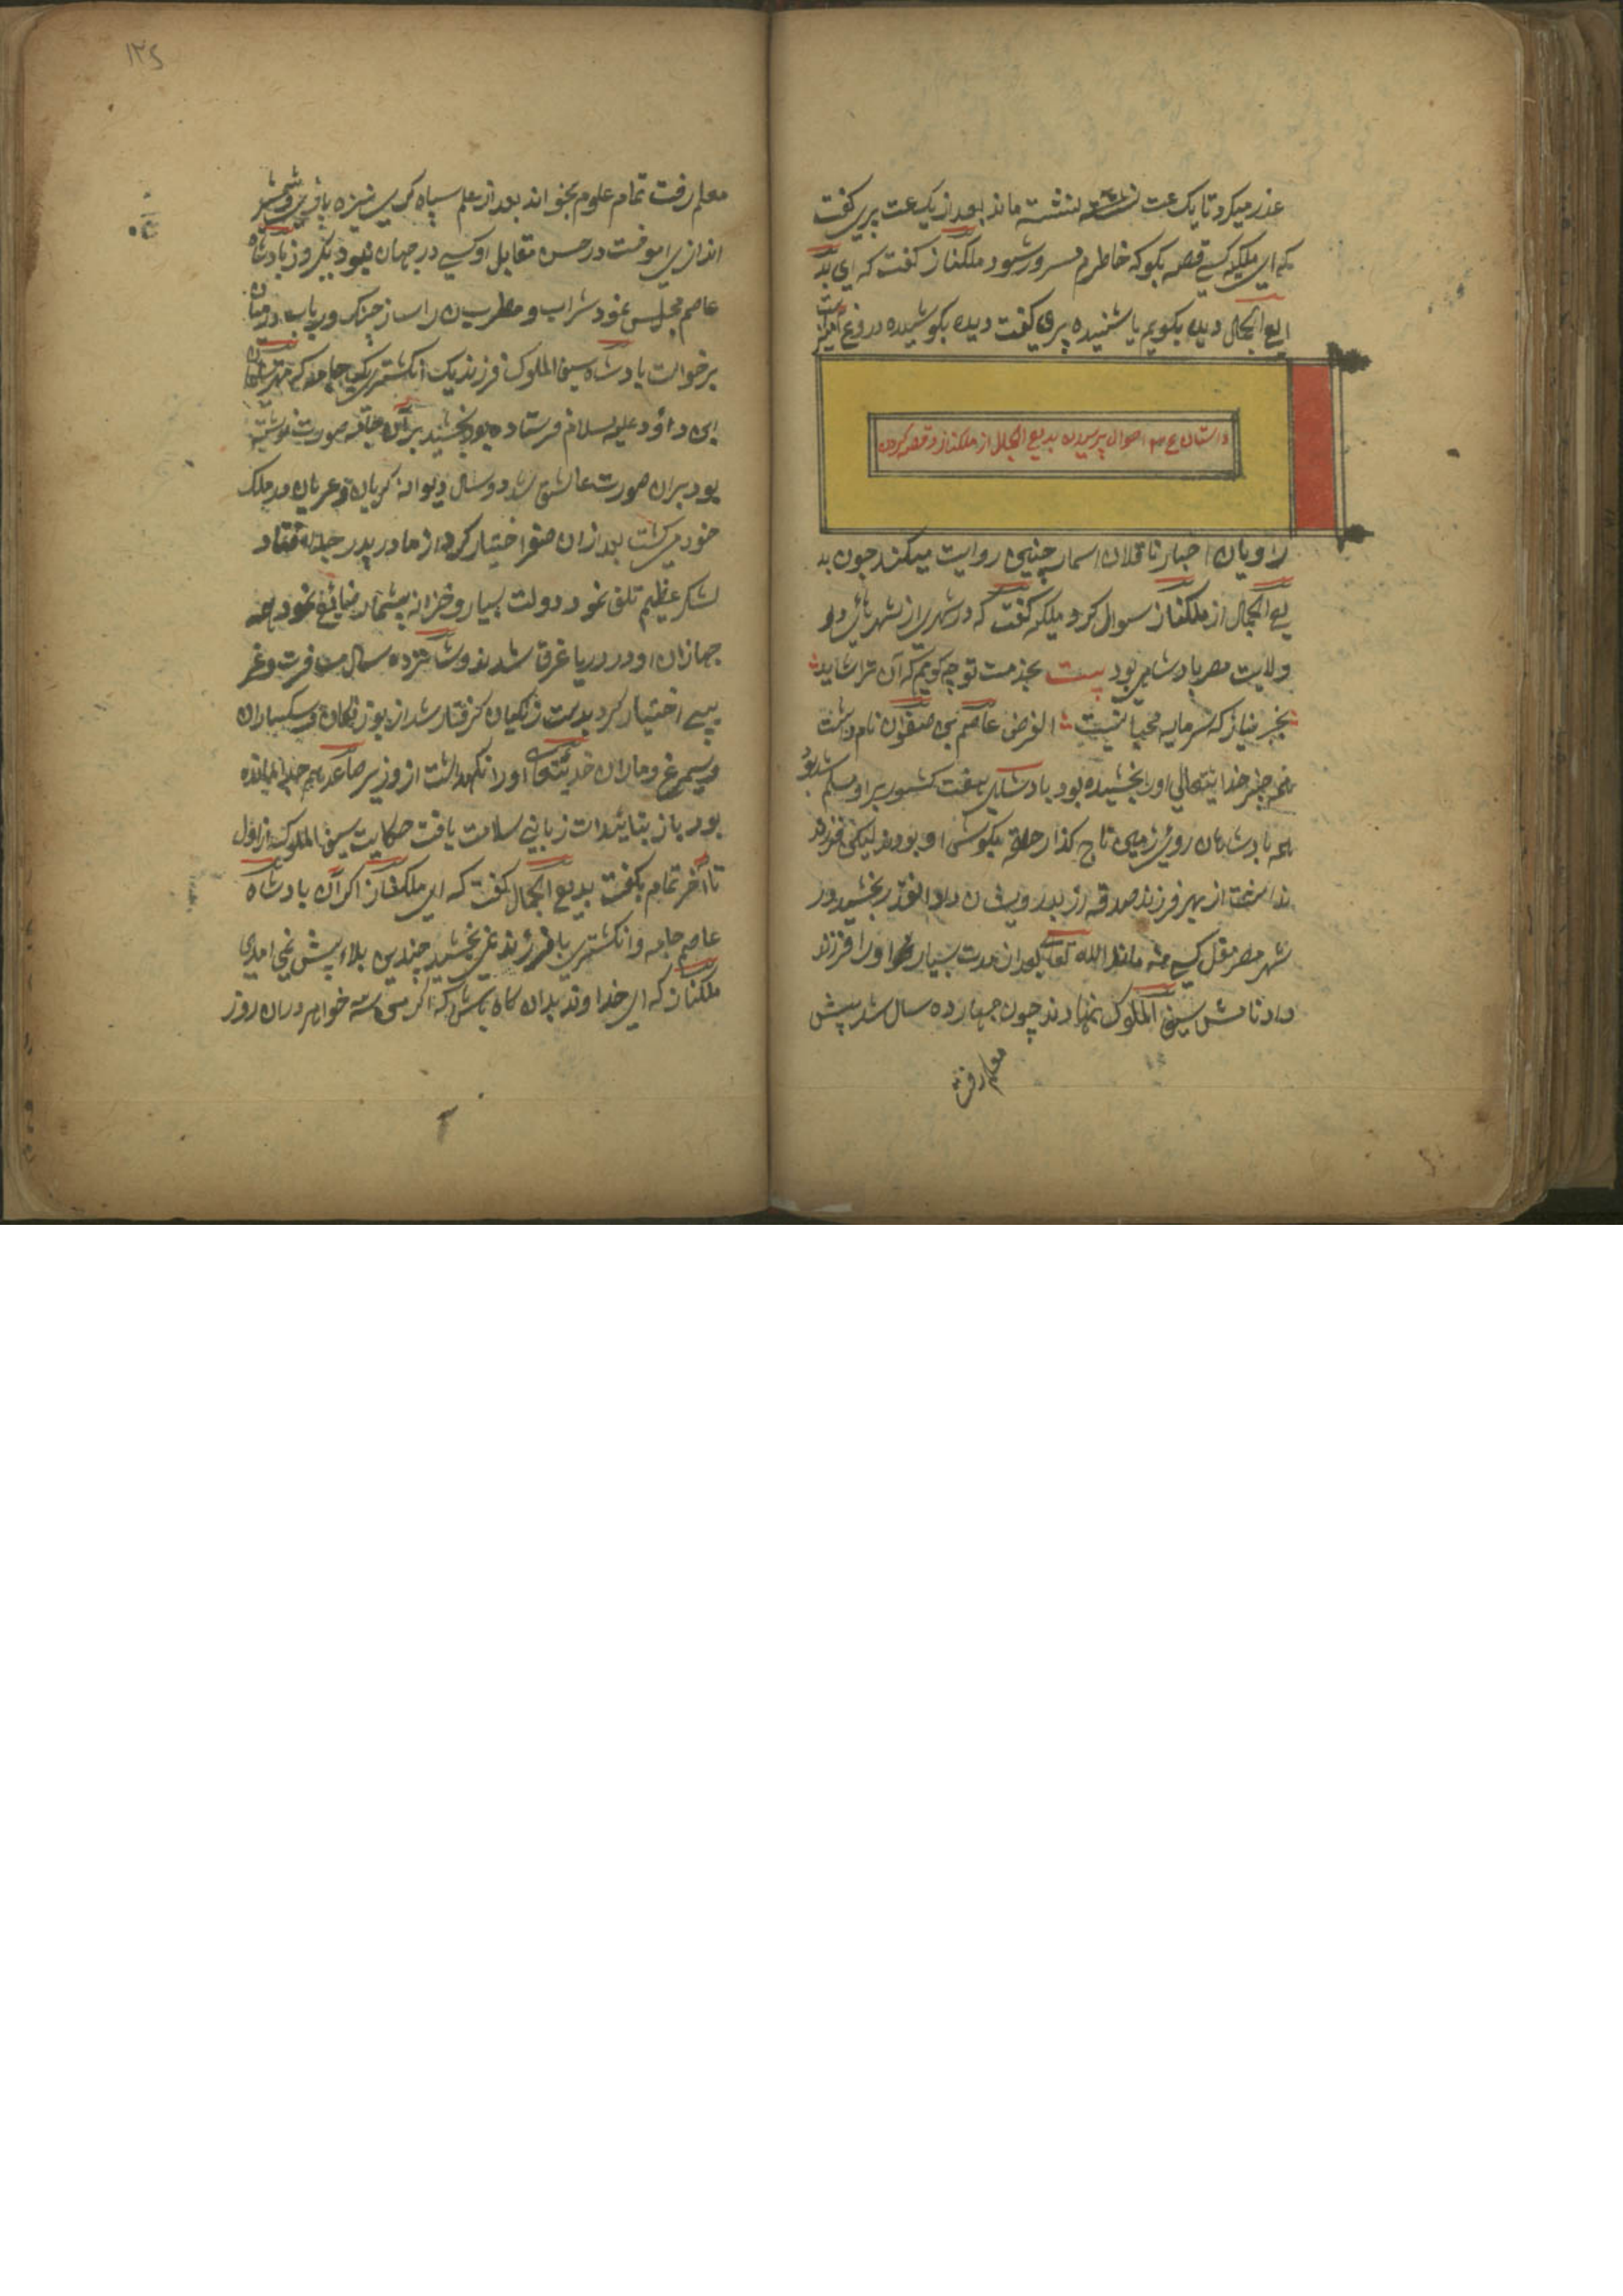 عذر میکرد تا یک عت نشسته ماند بعد از یک عت پری کفت
که ای ملیکه کسی قصه بکو که خاطرم مسرور شود ملکناز کفت که ای بد
یع الجمال دیده بکویم یا شنیده پری کفت دیده بکو شنیده دروغ
داستان احوال پرسیدن بدیع الجمال از ملکناز و قصه کردن
راویان اخبار ناقلان اسمار چنین روایت میکنند چون بد
یع الجمال از ملکناز سوال کرد ملیکه کفت که در شهری از شهر
ولایت مصر پادشاهی بود بیت بخدمت تو چه کویم که آن ترا شاید
بجز نیاز که سرمایه محبا نیست الغرض عاصم بن صفوان نام داشت
همه چیز خدایتعالی اورا بخشیده بود پادشاهی هفت کشور بر او مسلم شده بود
همه پادشاهان روی زمین تاج کذار حلقه بکوش او بودند لیکن فرزند
نداشت از بهر فرزند صدقه زر بدرویشان داد
شهر مصر کسی نماند الله تعالی بعد از مدت بسیار اورا فرزند
داد نامش سیف الملوک نهادند چون چهارده سال شد پیش
معلم رفت
۱۲۵
معلم رفت تمام علوم بخواند بعد از علم سپاه کری نیزه بازی و شمشیر
اندازی اموخت در حسن مقابل او کسی در جهان نبود یکروز پادشاه
عاصم مجلس نمود شراب و مطربان را ساز چنک و رباب در میان
برخواست پادشاه سیف الملوک فرزند یک انکشتری یک جامه که مهتر سلیمان
ابن داؤد علیه سلام فرستاده بود بخشید بر آن جامه صورت نوشته
بود بران صورت عاشق شد دو سال دیوانه کریان و عریان در ملک
خود میکشت بعد ازان سفر اختیار کرد از ما در پدر جدا افتاد
لشکر عظیم تلف نمود دولت بسیار و خزانه بیشمار ضائع نمود همه
جهازان او در دریا غرق شدند و شانزده سال مسافرت و غر
یبی اختیار کرد بدست زنکیان کرفتار شد از بوزنکان و سکساران
و سیمرغ و ماران خدایتعالی اورا نکهداشت از وزیر صاعد هم جدا مانده
بود باز بتائیدات ربانی سلامت یافت حکایت سیف الملوک از اول
تا آخر تمام بکفت بدیع الجمال کفت که ای ملکناز اکر آن پادشاه
عاصم جامه و انکشتری با فرزند نمی بخشید چندین بلا پیش نمی امدی
ملکناز که ای خداوند بدان کاه باش که اکر می شه خواهر دران روز